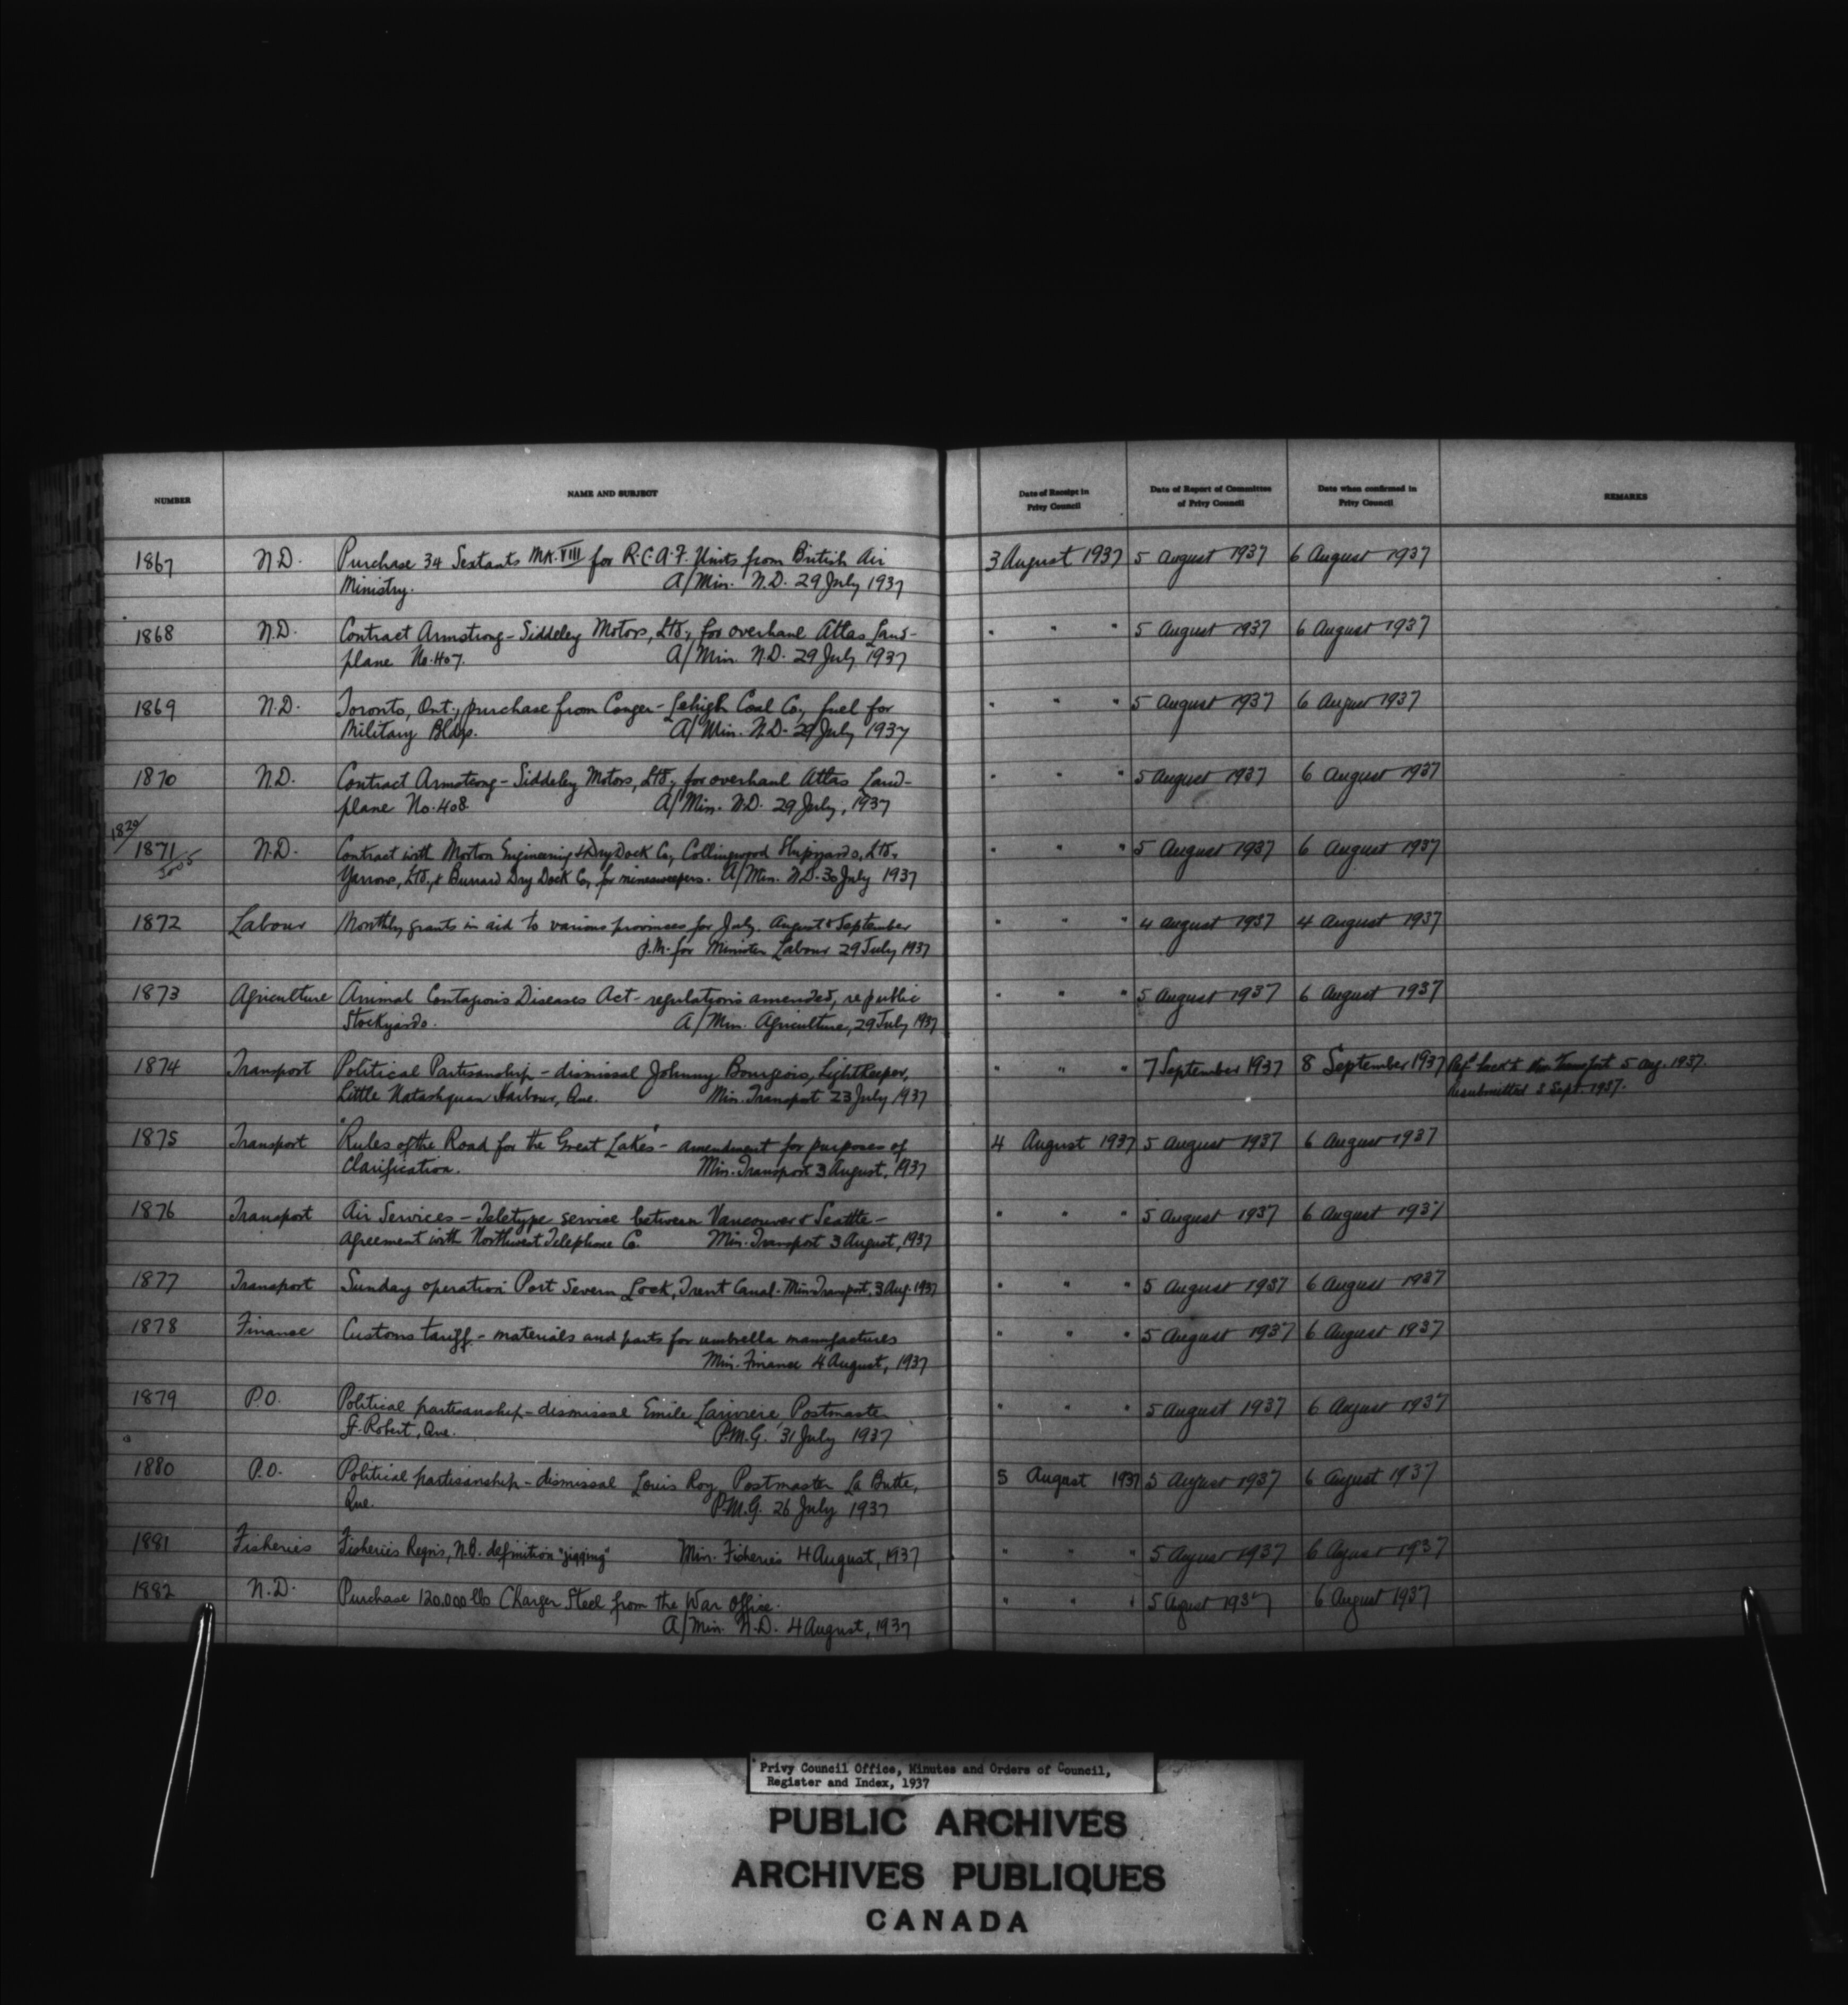 NUMBER NAME AND SUBJECT Date of Receipt in Privy Council Date of Report of Committee of Privy Council Date when confirmed in Privy Council REMARKS
1867 N.D. Purchase 34 Sextants MK.VIII for R.C.A.F. Units from British Air 3 August 1937 5 August 1937 6 August 1937
Ministry. A/Min. N.D. 29 July 1937
1868 N.D. Contract Armstrong-Siddeley Motors, Ltd., for overhaul Atlas Land- " " " 5 August 1937 6 August 1937
plane No. 407. A/Min. N.D. 29 July 1937
1869 N.D. Toronto, Ont., purchase from Conger-Lehigh Coal Co., fuel for " " " 5 August 1937 6 August 1937
Military Bldgs. A/Min. N.D. 29 July 1937
1870 N.D. Contract Armstrong-Siddeley Motors, Ltd., for overhaul Atlas Land- " " " 5 August 1937 6 August 1937
plane No. 408 A/Min. N.D. 29 July, 1937
1871 N.D. Contract with Morton Engineering & Dry Dock Co., Collingwood Shipyards, Ltd., " " " 5 August 1937 6 August 1937
Yarrows, Ltd., & Burrard Dry Dock Co, for minesweepers. A/Min. N.D. 30 July 1937
1872 Labour Monthly grants in aid to various provinces for July, August & September " " " 4 August 1937 4 August 1937
P.M. for Minister Labour 29 July 1937
1873 Agriculture Animal Contagious Diseases Act - regulations amended, re public " " " 5 August 1937 6 August 1937
Stockyards. A/Min. Agriculture, 29 July 1937
1874 Transport Political Partisanship - dismissal Johnny Bourgeois, Lightkeeper, " " " 7 September 1937 8 September 1937 Ref. back to Min. Transport 5 Aug. 1937.
Little Natashquan Harbour, Que. Min. Transport 23 July 1937 Resubmitted Sept. 1937.
1875 Transport "Rules of the Road for the Great Lakes" - amendment for purposes of 4 August 1937 5 August 1937 6 August 1937
Clarification. Min. Transport 3 August, 1937
1876 Transport Air Services - Teletype service between Vancouver & Seattle - " " " 5 August 1937 6 August 1937
Agreement with Northwest Telephone Co. Min. Transport 3 August, 1937
1877 Transport Sunday operation Port Severn Lock, Trent Canal. Min Transport, 3 Aug. 1937 " " " 5 August 1937 6 August 1937
1878 Finance Customs tariff - materials and parts for umbrella manufactures " " " 5 August 1937 6 August 1937
Min. Finance 4 August, 1937
1879 P.O. Political partisanship - dismissal Emile Lariviere, Postmaster " " " 5 August 1937 6 August 1937
St. Robert, Que. P.M.G. 31 July 1937
1880 P.O. Political partisanship - dismissal Louis Roy, Postmaster La Butte, 5 August 1937 5 August 1937 6 August 1937
Que. P.M.G. 26 July 1937
1881 Fisheries Fisheries Regn's, N.B. definition "jigging" Min. Fisheries 4 August, 1937 " " " 5 August 1937 6 August 1937
1882 N.D. Purchase 120,000 lbs Charger Steel from the War Office. " " " 5 August 1937 6 August 1937
A/Min. N.D. 4 August, 1937
Privy Council Office, Minutes and Orders of Council,
Register and Index, 1937
PUBLIC ARCHIVES
ARCHIVES PUBLIQUES
CANADA